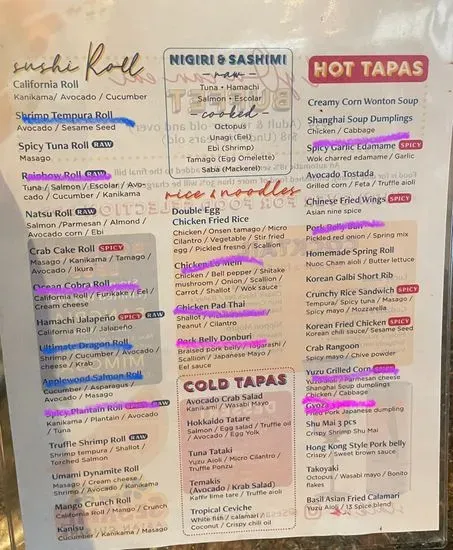 sushi Roll
California Roll
Kanikama / Avocado / Cucumber
Shrimp Tempura Roll
Avocado / Sesame Seed
Spicy Tuna Roll RAW
Masago
Rainbow Roll RAW
Tuna / Salmon / Escolar / Avo-
cado / Cucumber / Kanikama
Natsu Roll RAW
/Salmon /Parmesan / Almond /
Avocado corn / Ebi
Crab Cake Roll SPICY
Masago / Kanikama / Tamago /
Avocado / Ikura
Ocean Cobra Roll
California Roll / Furikake / Eel /
Cream cheese
Hamachi Jalapeño SPICY RAW
California Roll / Jalapeño
Ultimate Dragon Roll
Shrimp / Cucumber / Avocado /
cheese / Krab
Applewood Salmon Roll
Cucumber / Asparagus / Avocado /
Masago
Spicy Plantain Roll RAW
Kanikama / Plantain / Avocado
/ Tuna
Truffle Shrimp Roll RAW
Shrimp tempura / Shallot /
Torched Salmon
Umami Dynamite Roll
Masago / Cream cheese /
Shrimp / Avocado / Kanikama
Mango Crunch Roll
California Roll / Mango / Crunch
Kanisu
Cucumber / Kanikama / Masago
NIGIRI & SASHIMI
raw
Tuna • Hamachi
Salmon • Escolar
cooked
Octopus
Unagi (Eel)
Ebi (Shrimp)
Tamago (Egg Omelette)
Saba (Mackerel)
rice & noodles
Double Egg
Chicken Fried Rice
Chicken / Onsen tamago / Micro
Cilantro / Vegetable / Stir fried
egg / Pickled fresno / Scallion
Chicken Lo Mein
Chicken / Bell pepper / Shitake
mushroom / Onion / Scallion /
Carrot / Shallot / Wok sauce
Chicken Pad Thai
Shallot /
Peanut / Cilantro
Pork Belly Donburi
Braised pork belly / Togarashi /
Scallion / Japanese Mayo / Eel
sauce
COLD TAPAS
Avocado Crab Salad
Kanikami / Wasabi Mayo
Hokkaido Tatare
Salmon / Egg salad / Truffle oil
/ Avocado / Egg Yolk
Tuna Tataki
Yuzu Aioli / Micro Cilantro /
Truffle Ponzu
Temakis
(Avocado / Krab Salad)
Kaffir lime tare / Truffle aioli
Tropical Ceviche
White fish / calamari /
Coconut / Crispy chili oil
HOT TAPAS
Creamy Corn Wonton Soup
Shanghai Soup Dumplings
Chicken / Cabbage
Spicy Garlic Edamame SPICY
Wok charred edamame / Garlic
Avocado Tostada
Grilled corn / Feta / Truffle aioli
Chinese Fried Wings SPICY
Asian nine spice
Pork Belly Bun
Pickled red onion / Spring mix
Homemade Spring Roll
Nuoc Cham aioli / Butter lettuce
Korean Galbi Short Rib
Crunchy Rice Sandwich SPICY
Tempura/ Spicy tuna / Masago
/ Spicy mayo / Mozzarella
Korean Fried Chicken SPICY
Korean chili sauce / Sesame Seed
Crab Rangoon
Spicy mayo / Chive powder
Yuzu Grilled Corn SPICY
Yuzu Aioli / Parmesan cheese
Shanghai Soup Dumplings
Chicken / Cabbage
Gyoza
Fried Pork Japanese dumpling
Shu Mai 3 pcs
Crispy Shrimp Shu Mai
Hong Kong Style Pork belly
Crispy / Sweet brown sauce
Takoyaki
Octopus / Wasabi mayo / Bonito
flakes
Basil Asian Fried Calamari
Yuzu Aioli / 13 Spice blend